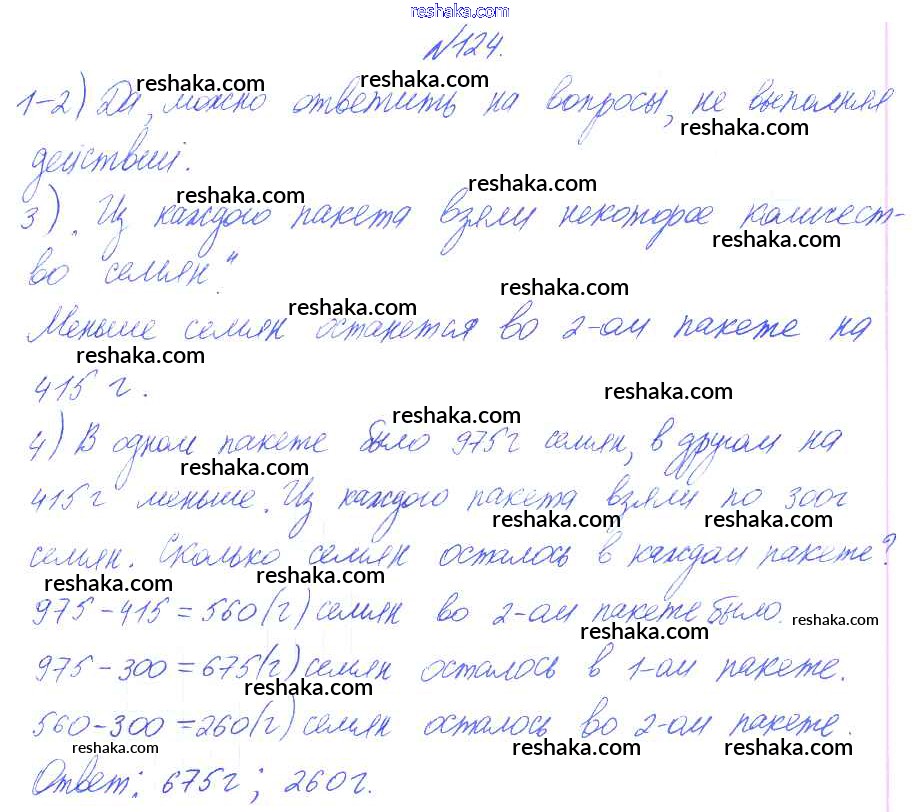 reshaka.com
№124.
reshaka.com reshaka.com
1-2) Да, можно ответить на вопросы, не выполняя
reshaka.com
действий.
reshaka.com reshaka.com
3) „Из каждого пакета взяли некоторое количест-
reshaka.com
во семян“.
reshaka.com
reshaka.com
Меньше семян останется во 2-ом пакете на
reshaka.com
415 г.
reshaka.com
reshaka.com
4) В одном пакете было 975г семян, в другом на
reshaka.com
415г меньше. Из каждого пакета взяли по 300г
reshaka.com reshaka.com
семян. Сколько семян осталось в каждом пакете?
reshaka.com reshaka.com
975-415=560(г) семян во 2-ом пакете было.
reshaka.com
reshaka.com
975-300=675(г) семян осталось в 1-ом пакете.
reshaka.com
560-300=260(г) семян осталось во 2-ом пакете.
reshaka.com reshaka.com reshaka.com
Ответ: 675г; 260г.